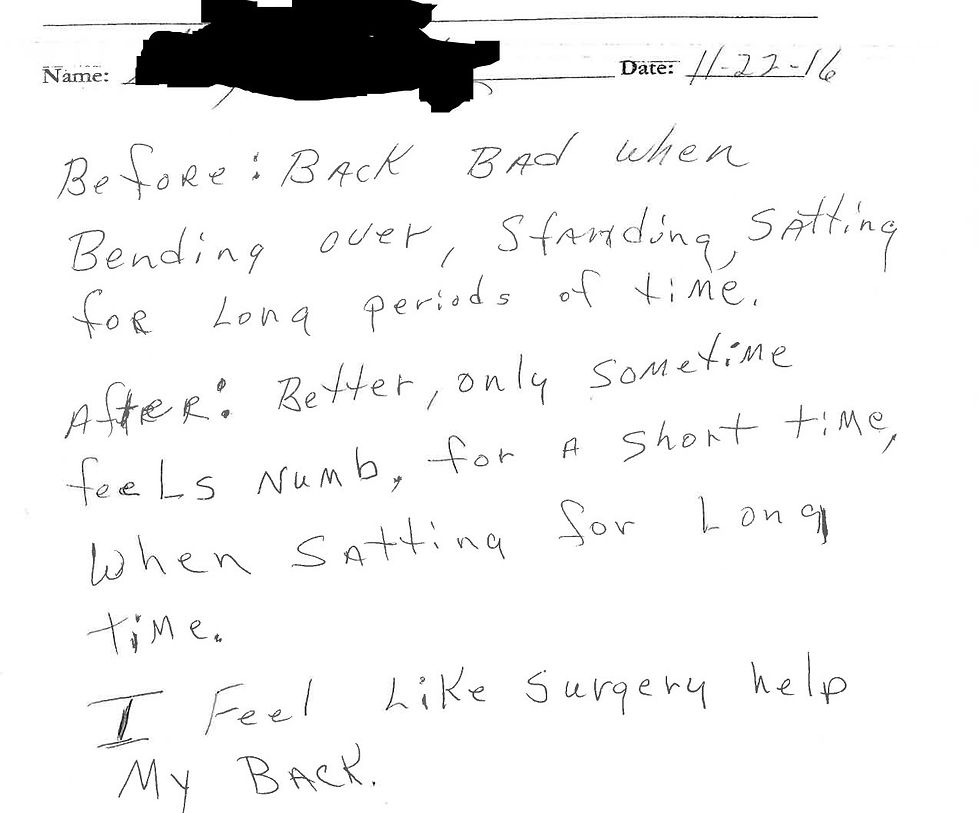 Name: Date: 11-22-16
Before: BACK BAD when
Bending over, Standing, SAtting
foR Long periods of time.
AfteR: Better, only sometime
feeLs Numb, for A short time,
when SAtting for Long
time.
I Feel Like surgery help
My BACK.